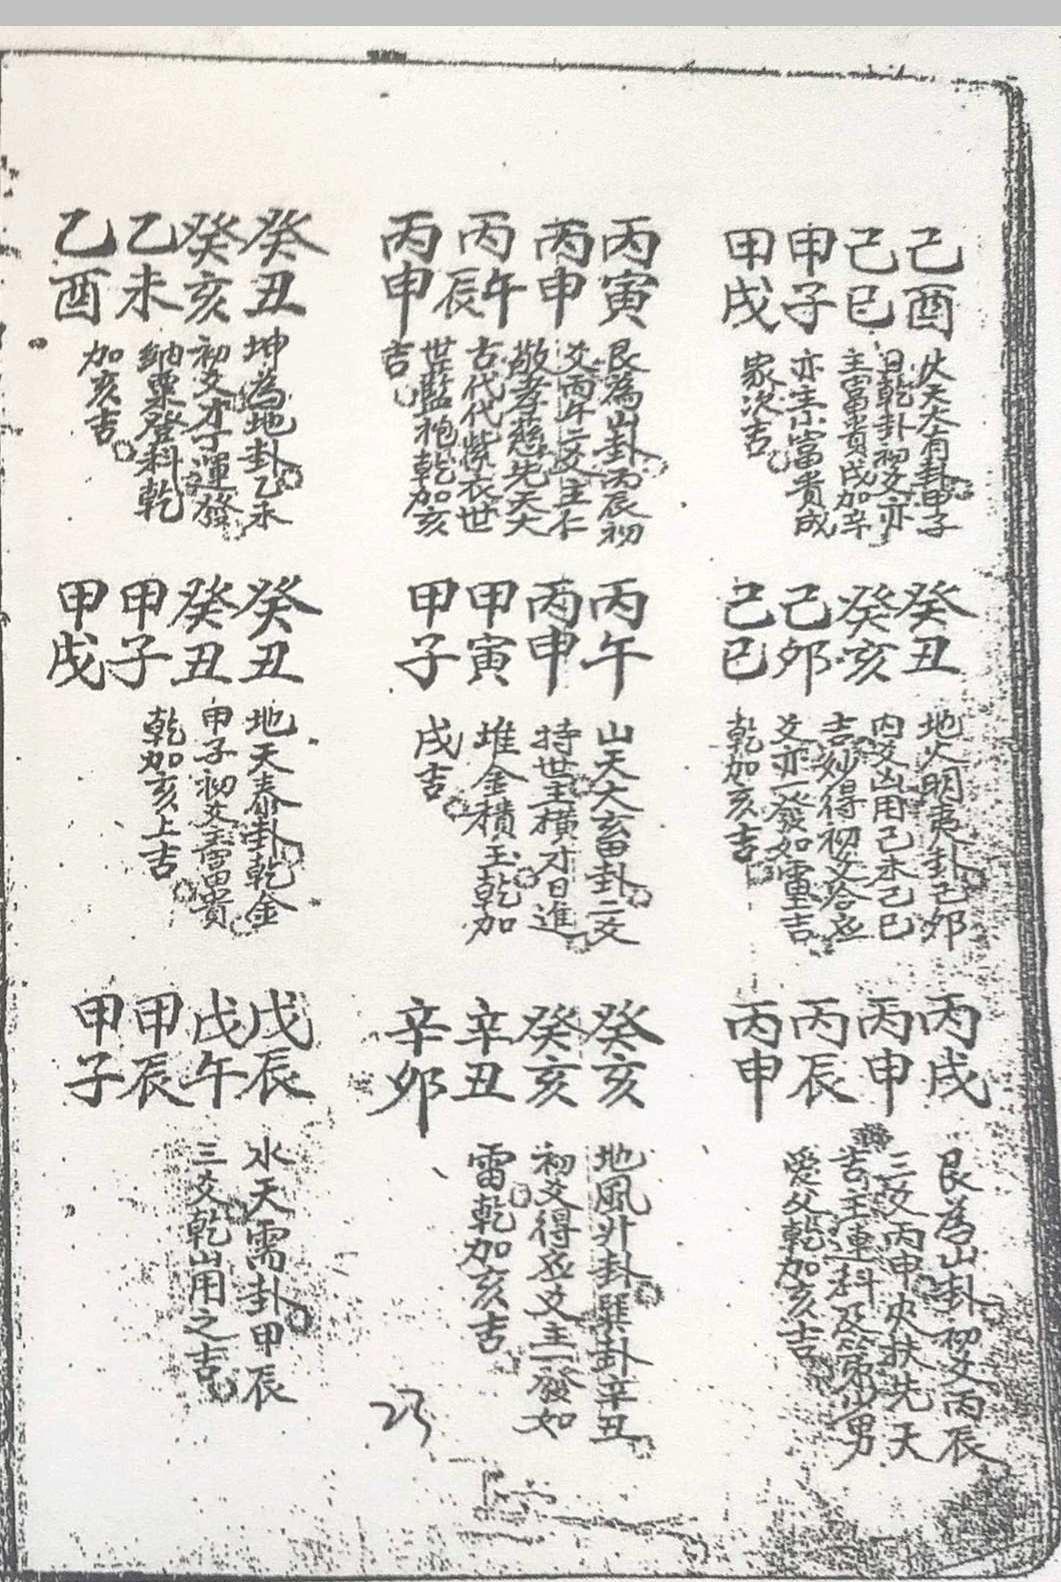 己酉
己巳
甲子
甲戌
火天大有卦甲子
日乾卦初爻亦
主富貴戌加辛
亦主小富貴戌
家次吉
癸丑
癸亥
己卯
己巳
地火明夷卦己卯
內爻凶用己未己巳
吉妙得初爻合丞
爻亦一發如雷吉
乾加亥吉
丙戌
丙申
丙辰
丙申
艮為山卦初爻丙辰
三爻丙申夾扶先天
吉主連科及第少男
愛父乾加亥吉
丙寅
丙申
丙午
丙辰
丙申
艮為山卦丙辰初
爻丙午二爻主仁
敬孝慈先天大
古代代紫衣世
世藍袍乾加亥
吉
丙午
丙申
甲寅
甲子
山天大畜卦二爻
持世主橫才日進
堆金積玉乾加
戌吉
癸亥
癸亥
辛丑
辛卯
地風升卦巽卦辛丑
初爻得丞爻主一發如
雷乾加亥吉
癸丑
癸亥
乙未
乙酉
坤為地卦乙未
初爻才丁運發
納粟登科乾
加亥吉
癸丑
癸丑
甲子
甲戌
地天泰卦乾金
甲子初爻主富貴
乾加亥上吉
戊辰
戊午
甲辰
甲子
水天需卦甲辰
三爻乾山用之吉
23